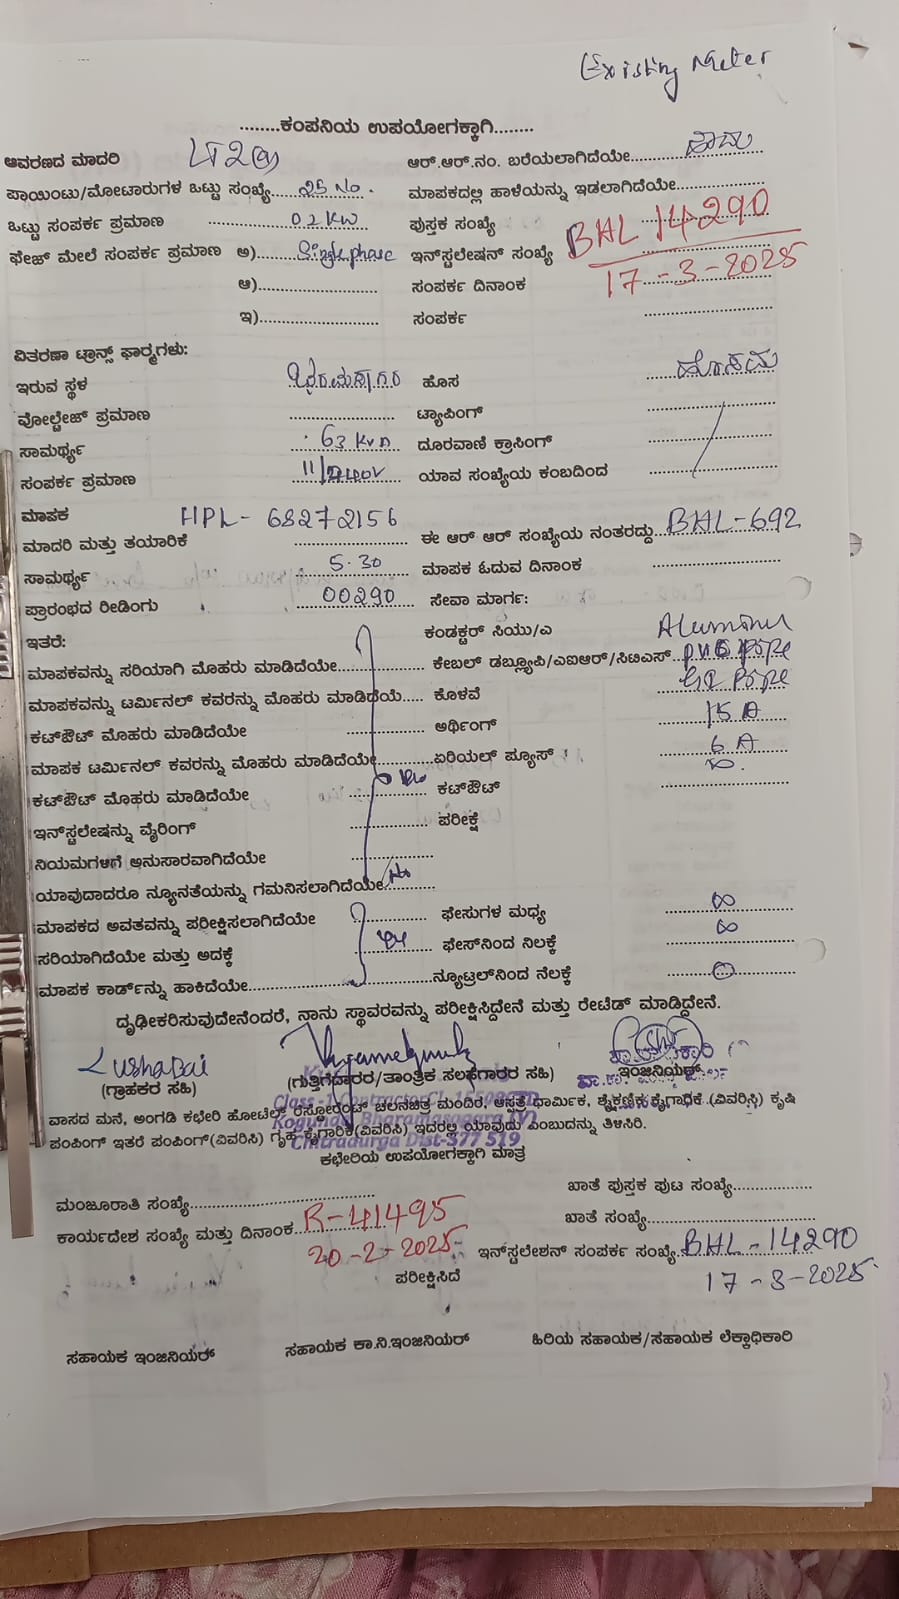 Existing Meter
........ಕಂಪನಿಯ ಉಪಯೋಗಕ್ಕಾಗಿ........
ಆವರಣದ ಮಾದರಿ LT2(a) ಆರ್.ಆರ್.ನಂ. ಬರೆಯಲಾಗಿದೆಯೇ
ಪಾಯಿಂಟು/ಮೋಟಾರುಗಳ ಒಟ್ಟು ಸಂಖ್ಯೆ..... 25 No. ಮಾಪಕದಲ್ಲಿ ಹಾಳೆಯನ್ನು ಇಡಲಾಗಿದೆಯೇ
ಒಟ್ಟು ಸಂಪರ್ಕ ಪ್ರಮಾಣ 02 KW ಪುಸ್ತಕ ಸಂಖ್ಯೆ
ಫೇಜ್ ಮೇಲೆ ಸಂಪರ್ಕ ಪ್ರಮಾಣ ಅ) Single phase ಇನ್‌ಸ್ಟಲೇಷನ್ ಸಂಖ್ಯೆ BHL 14290
ಆ) ಸಂಪರ್ಕ ದಿನಾಂಕ 17-3-2025
ಇ) ಸಂಪರ್ಕ
ವಿತರಣಾ ಟ್ರಾನ್ಸ್ ಫಾರ್‍ಮಗಳು:
ಇರುವ ಸ್ಥಳ ಹೊಸ
ವೋಲ್ಟೇಜ್ ಪ್ರಮಾಣ ಟ್ಯಾಪಿಂಗ್
ಸಾಮರ್ಥ್ಯ 63 KVA ದೂರವಾಣಿ ಕ್ರಾಸಿಂಗ್
ಸಂಪರ್ಕ ಪ್ರಮಾಣ ಯಾವ ಸಂಖ್ಯೆಯ ಕಂಬದಿಂದ
ಮಾಪಕ HPL- 68272156
ಮಾದರಿ ಮತ್ತು ತಯಾರಿಕೆ ಈ ಆರ್ ಆರ್ ಸಂಖ್ಯೆಯ ನಂತರದ್ದು BHL-692
ಸಾಮರ್ಥ್ಯ 5.30 ಮಾಪಕ ಓದುವ ದಿನಾಂಕ
ಪ್ರಾರಂಭದ ರೀಡಿಂಗು 00290 ಸೇವಾ ಮಾರ್ಗ:
ಇತರೆ: ಕಂಡಕ್ಟರ್ ಸಿಯು/ಎ
ಮಾಪಕವನ್ನು ಸರಿಯಾಗಿ ಮೊಹರು ಮಾಡಿದೆಯೇ ಕೇಬಲ್ ಡಬ್ಲ್ಯೂಪಿ/ಎಐಆರ್/ಸಿಟಿಎಸ್
ಮಾಪಕವನ್ನು ಟರ್ಮಿನಲ್ ಕವರನ್ನು ಮೊಹರು ಮಾಡಿದೆಯೆ ಕೊಳವೆ GI Pipe
ಕಟ್‌ಔಟ್ ಮೊಹರು ಮಾಡಿದೆಯೇ ಅರ್ಥಿಂಗ್ 15 A
ಮಾಪಕ ಟರ್ಮಿನಲ್ ಕವರನ್ನು ಮೊಹರು ಮಾಡಿದೆಯೇ ಏರಿಯಲ್ ಫ್ಯೂಸ್ 6 A
ಕಟ್‌ಔಟ್ ಮೊಹರು ಮಾಡಿದೆಯೇ ಕಟ್‌ಔಟ್
ಇನ್‌ಸ್ಟಲೇಷನ್ನು ವೈರಿಂಗ್ ಪರೀಕ್ಷೆ
ನಿಯಮಗಳಿಗೆ ಅನುಸಾರವಾಗಿದೆಯೇ
ಯಾವುದಾದರೂ ನ್ಯೂನತೆಯನ್ನು ಗಮನಿಸಲಾಗಿದೆಯೇ No
ಮಾಪಕದ ಅವತವನ್ನು ಪರೀಕ್ಷಿಸಲಾಗಿದೆಯೇ ಫೇಸುಗಳ ಮಧ್ಯ ∞
ಸರಿಯಾಗಿದೆಯೇ ಮತ್ತು ಅದಕ್ಕೆ ಫೇಸ್‌ನಿಂದ ನೆಲಕ್ಕೆ ∞
ಮಾಪಕ ಕಾರ್ಡ್‌ನ್ನು ಹಾಕಿದೆಯೇ ನ್ಯೂಟ್ರಲ್‌ನಿಂದ ನೆಲಕ್ಕೆ
ದೃಢೀಕರಿಸುವುದೇನೆಂದರೆ, ನಾನು ಸ್ಥಾವರವನ್ನು ಪರೀಕ್ಷಿಸಿದ್ದೇನೆ ಮತ್ತು ರೇಟೆಡ್ ಮಾಡಿದ್ದೇನೆ.
(ಗ್ರಾಹಕರ ಸಹಿ) (ಗುತ್ತಿಗೆದಾರರ/ತಾಂತ್ರಿಕ ಸಲಹೆಗಾರರ ಸಹಿ) ಇಂಜಿನಿಯರ್
ವಾಸದ ಮನೆ, ಅಂಗಡಿ ಕಛೇರಿ ಹೋಟೆಲ್ ರೆಸ್ಟೋರೆಂಟ್ ಚಲನಚಿತ್ರ ಮಂದಿರ, ಆಸ್ಪತ್ರೆ ಧಾರ್ಮಿಕ, ಶೈಕ್ಷಣಿಕ ಕೈಗಾರಿಕೆ (ವಿವರಿಸಿ) ಕೃಷಿ
ಪಂಪಿಂಗ್ ಇತರೆ ಪಂಪಿಂಗ್(ವಿವರಿಸಿ) ಗೃಹ ಕೈಗಾರಿಕೆ(ವಿವರಿಸಿ) ಇದರಲ್ಲಿ ಯಾವುದು ಎಂಬುದನ್ನು ತಿಳಿಸಿರಿ.
Chitradurga Dist-577 519
ಕಛೇರಿಯ ಉಪಯೋಗಕ್ಕಾಗಿ ಮಾತ್ರ
ಮಂಜೂರಾತಿ ಸಂಖ್ಯೆ ಖಾತೆ ಪುಸ್ತಕ ಪುಟ ಸಂಖ್ಯೆ
ಕಾರ್ಯದೇಶ ಸಂಖ್ಯೆ ಮತ್ತು ದಿನಾಂಕ R-41495 ಖಾತೆ ಸಂಖ್ಯೆ
20-2-2025 ಇನ್‌ಸ್ಟಲೇಶನ್ ಸಂಪರ್ಕ ಸಂಖ್ಯೆ BHL-14290
ಪರೀಕ್ಷಿಸಿದೆ 17-3-2025
ಸಹಾಯಕ ಇಂಜಿನಿಯರ್ ಸಹಾಯಕ ಕಾ.ನಿ.ಇಂಜಿನಿಯರ್ ಹಿರಿಯ ಸಹಾಯಕ/ಸಹಾಯಕ ಲೆಕ್ಕಾಧಿಕಾರಿ